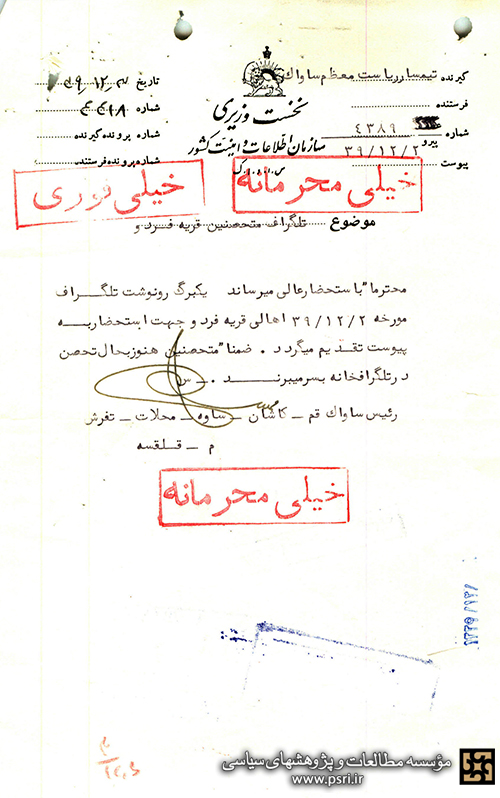 گیرنده تیمسار ریاست معظم ساواک
فرستنده
شماره ۴۳۸۹
پیرو ۳۹/۱۲/۲
پیوست
نخست وزیری
سازمان اطلاعات و امنیت کشور
س.ا.و.ا.ک
تاریخ
شماره ۴۴۱۸
شماره پرونده گیرنده
شماره پرونده فرستنده
خیلی محرمانه
خیلی فوری
موضوع تلگراف متحصنین قریه فرد و
محترما" با ستحضارعالی میرساند یکبرگ رونوشت تلگراف
مورخه ۳۹/۱۲/۲ اهالی قریه فرد و جهت استحضار به
پیوست تقدیم میگردد . ضمنا" متحصنین هنوز بحال تحصن
در تلگرافخانه بسر میبرند . س
رئیس ساواک قم ـ کاشان ـ ساوه ـ محلات ـ تفرش
م ـ قلقسه
خیلی محرمانه
مؤسسه مطالعات و پژوهشهای سیاسی
www.psri.ir